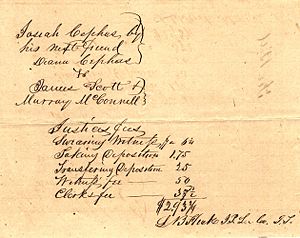 Josiah Cephas by
his next friend
Diana Cephas
vs
James Scott &
Murray McConnell
Justices fees
Swearing Witness
Taking Deposition 1 75
Transfering Deposition 25
Witness fee — 50
Clerks fee — 37½
$2.93¾